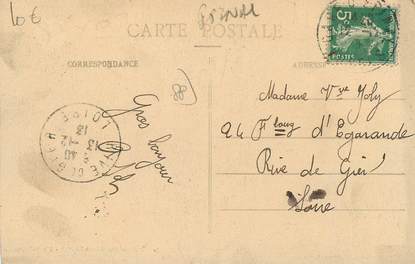 10€
EPINAL
CARTE POSTALE
CORRESPONDANCE
ADRESSE
5
POSTES
88
Gros bonjour
RIVE DE GIER
13 40
12
13
LOIRE
Madame Vve Joly
24 Fbourg d'Egarande
Rive de Gier
Loire